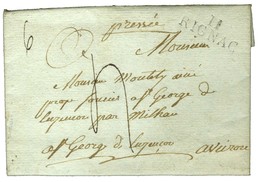 6
pressée
11
RIGNAC
Monsieur
Monsieur
propre St George de
Luzencon par Milhau
a St George de Luzencon
aveiron